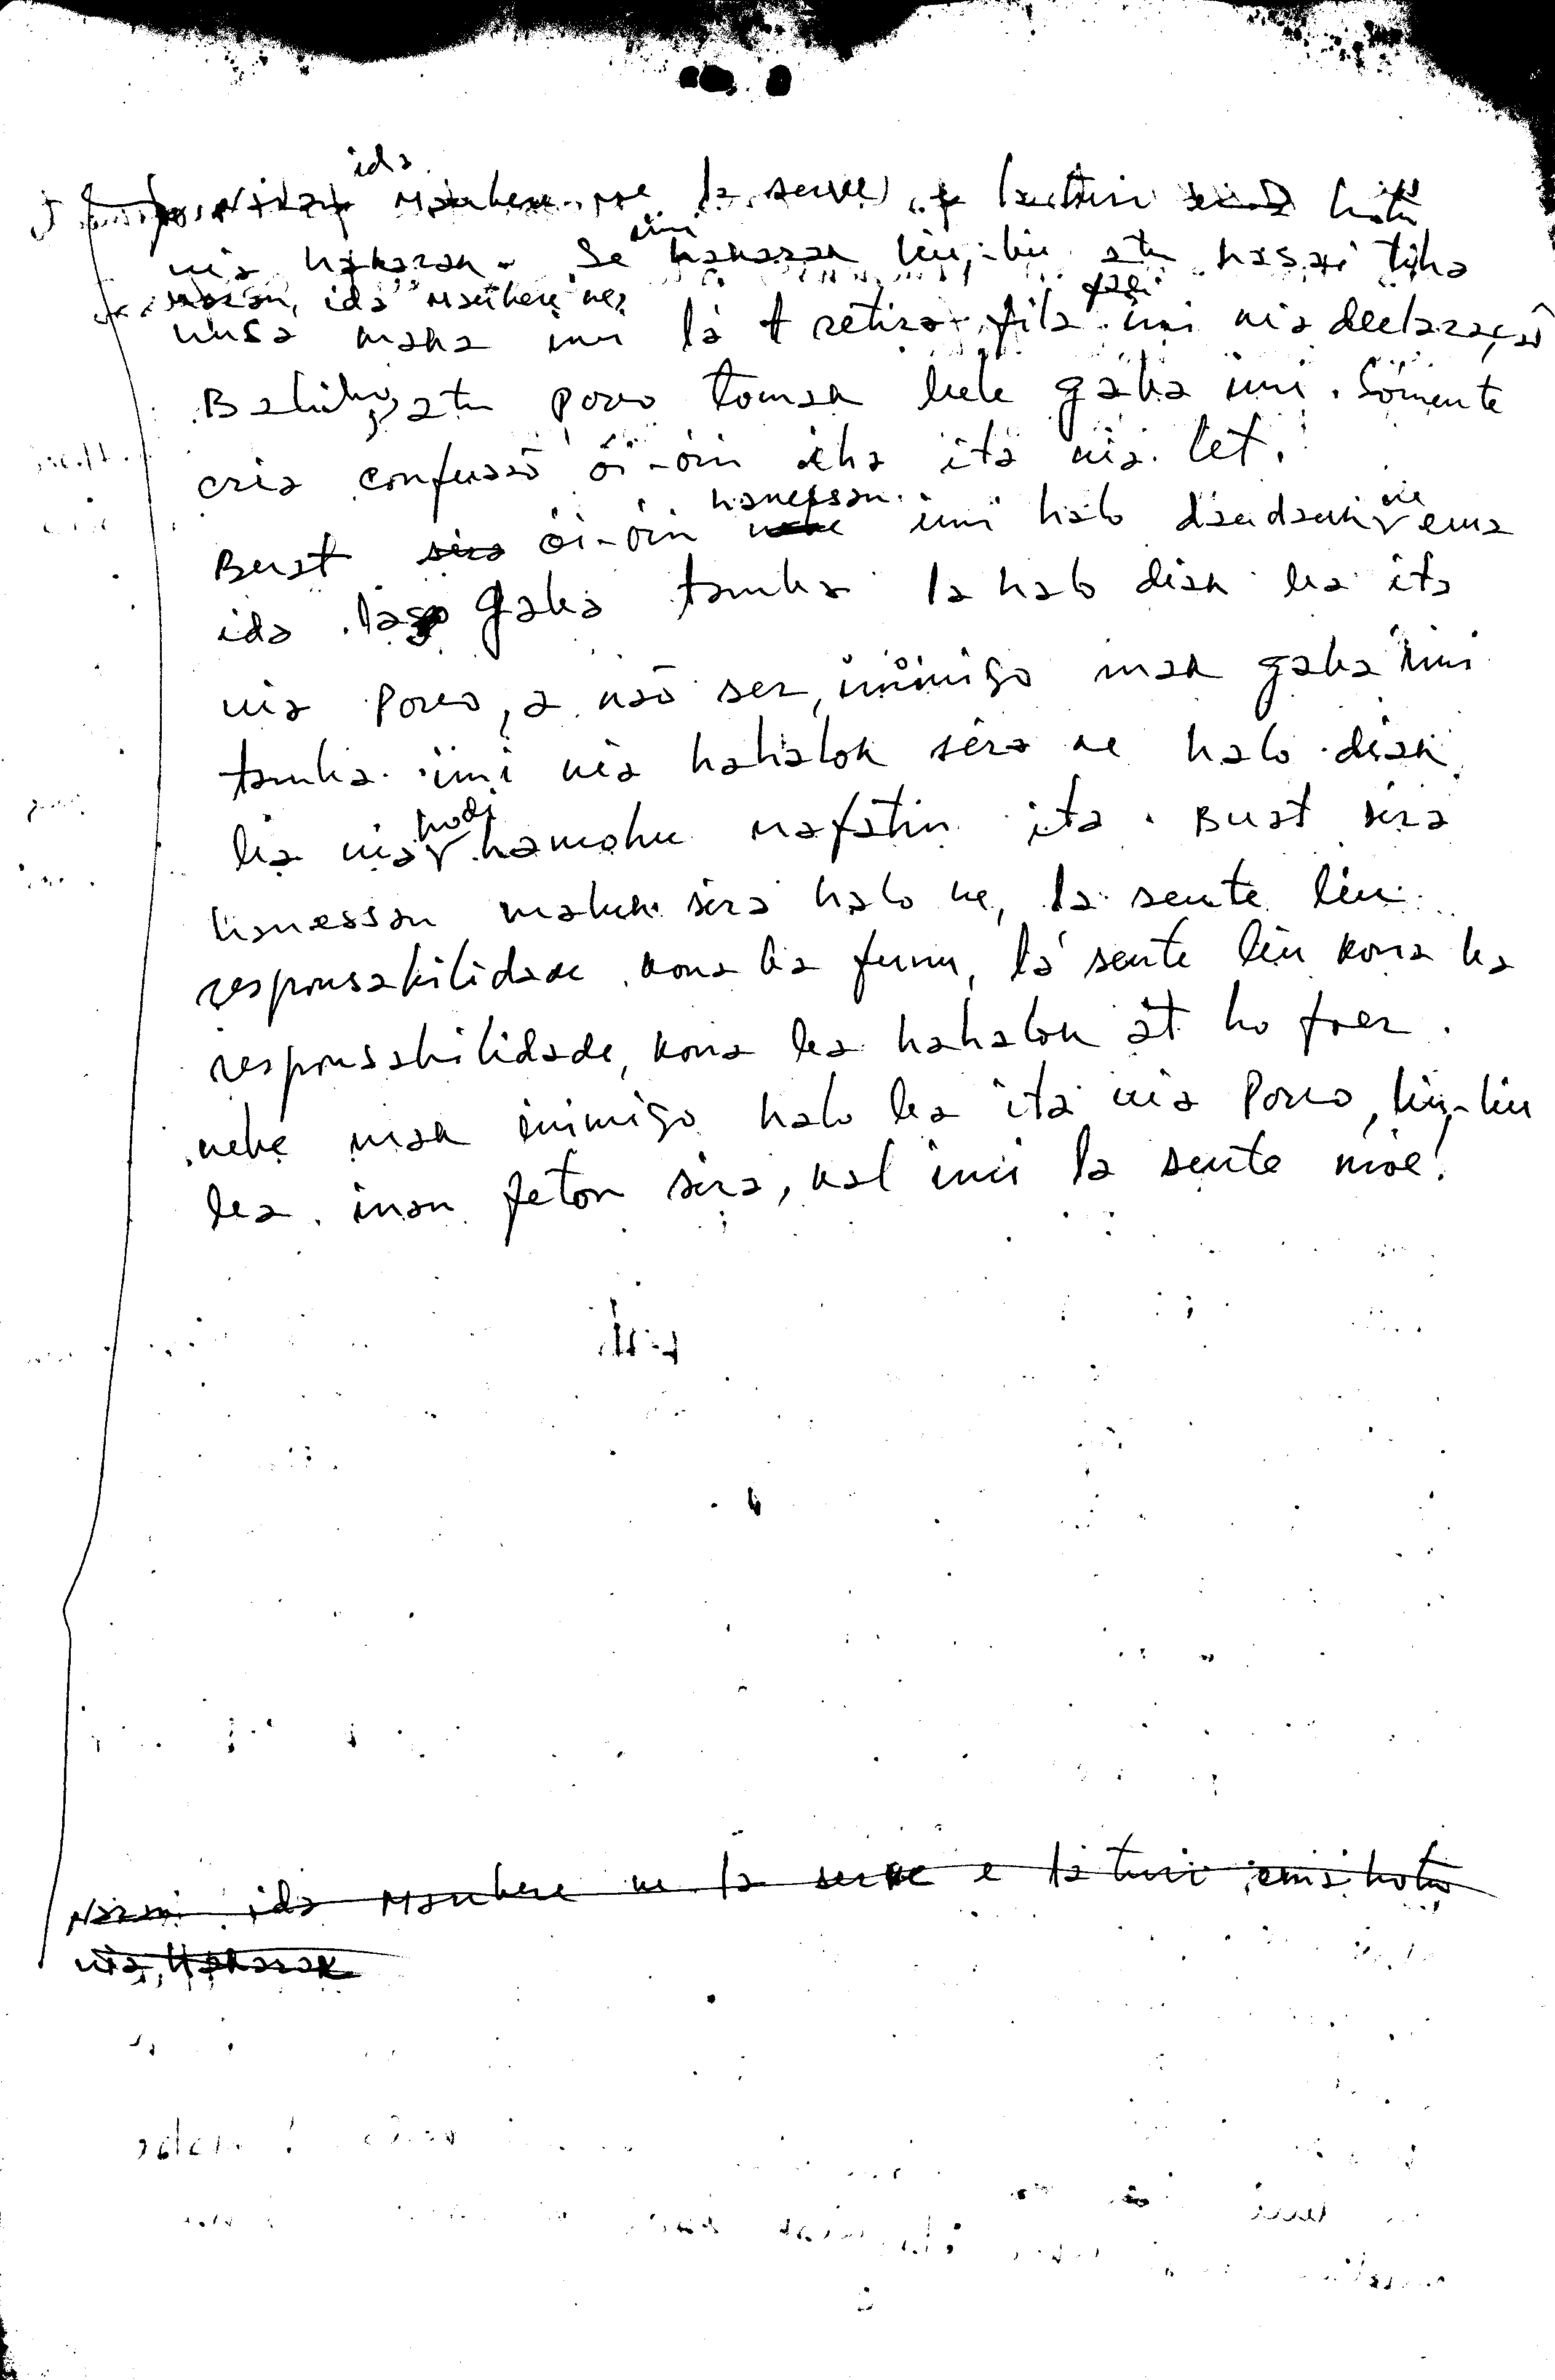 ida
Maubere ne la serve, e la tuir hotu
nia hakarak. Se imi hakarak liu-liu atu hasai tiha
ida Maubere ne,
nusa maka imi lá retira fila fali imi nia declaraçaõ
Bahihy, atu povo tomak bele gaba imi. Sómente
cria confusaõ ói-óin iha ita nia let.
Buat sira ói-óin hanessan imi halo daudauk ne ema
ida la gaba tamba la halo diak ba ita
nia Povo, a naõ ser, inimigo mak gaba imi
tamba imi nia hahalok sira ne halo diak
ba nia hodi hamohu nafatin ita. Buat sira
hanessan maluk sira halo ne, la sente liu
responsabilidade kona ba funu, lá sente liu kona ba
responsabilidade, kona ba hahalok át ho foer
nebe mak inimigo halo ba ita nia Povo, liu-liu
ba inan feton sira, kal imi la sente moe!
Narani ida Maubere ne la serve e la tuir ema hotu
nia Hakarak